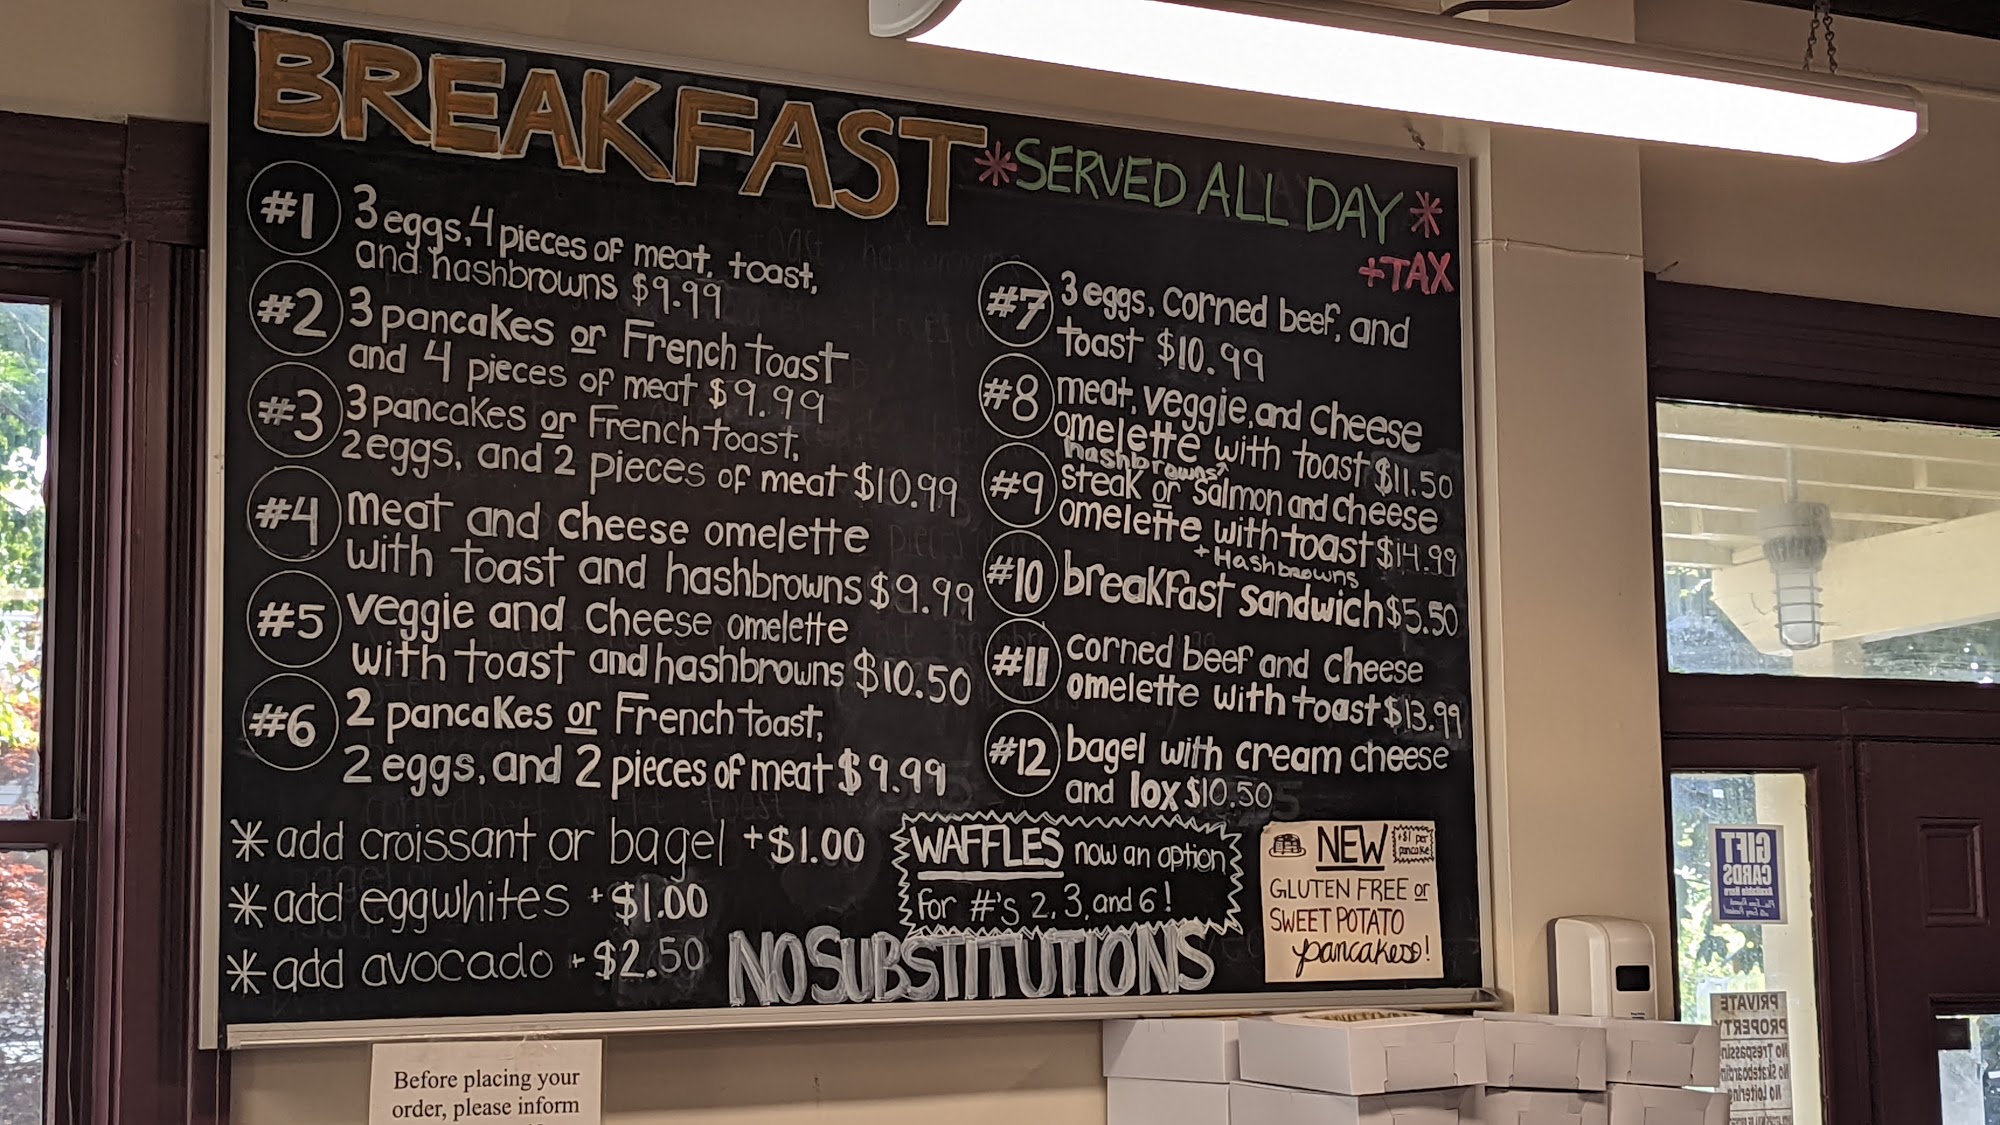 BREAKFAST *SERVED ALL DAY*
+TAX
#1 3 eggs, 4 pieces of meat, toast,
and hashbrowns $9.99
#2 3 pancakes or French toast
and 4 pieces of meat $9.99
#3 3 pancakes or French toast,
2 eggs, and 2 pieces of meat $10.99
#4 meat and cheese omelette
with toast and hashbrowns $9.99
#5 veggie and cheese omelette
with toast and hashbrowns $10.50
#6 2 pancakes or French toast,
2 eggs, and 2 pieces of meat $9.99
#7 3 eggs, corned beef, and
toast $10.99
#8 meat, veggie, and cheese
omelette with toast $11.50
hashbrowns^
#9 steak or salmon and cheese
omelette with toast $14.99
+ Hashbrowns
#10 breakfast sandwich $5.50
#11 corned beef and cheese
omelette with toast $13.99
#12 bagel with cream cheese
and lox $10.50
* add croissant or bagel +$1.00
* add eggwhites +$1.00
* add avocado + $2.50
WAFFLES now an option
for #'s 2, 3, and 6!
NO SUBSTITUTIONS
NEW
+$1 per
pancake
GLUTEN FREE or
SWEET POTATO
pancakes!
Before placing your
order, please inform
GIFT
CARDS
Available Here
PRIVATE
PROPERTY
No Trespassing
No Skateboarding
No Loitering